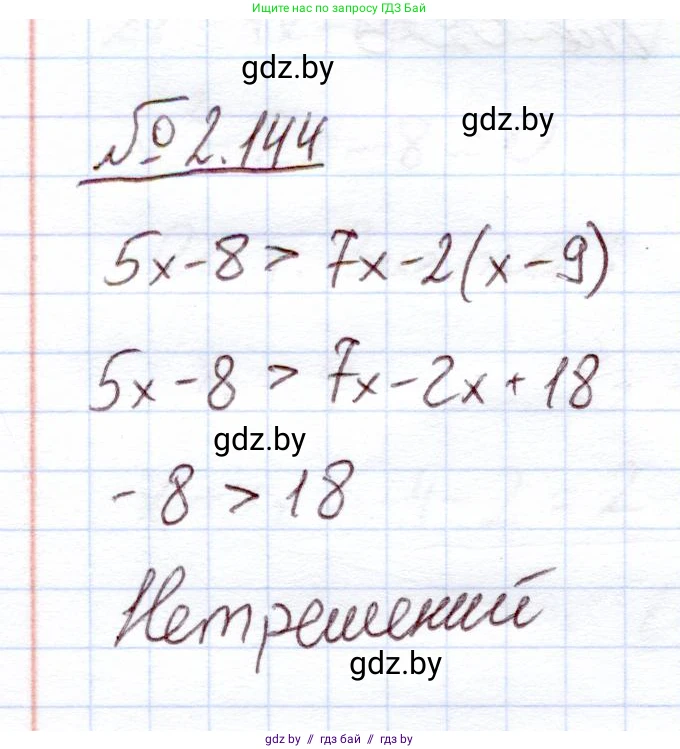 Ищите нас по запросу ГДЗ Бай
gdz.by
№ 2.144
gdz.by
5x-8 > 7x-2(x-9)
5x-8 > 7x-2x+18
gdz.by
-8 > 18
Нет решений
gdz.by
gdz.by // гдз бай // gdz.by